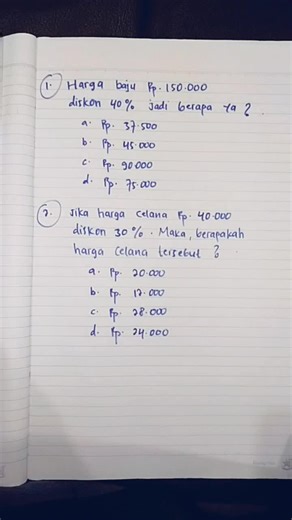 1. Harga baju Rp. 150.000
diskon 40% jadi berapa ya?
a. Rp. 37.500
b. Rp. 45.000
c. Rp. 90.000
d. Rp. 75.000
2. Jika harga celana Rp. 40.000
diskon 30%. Maka, berapakah
harga celana tersebut?
a. Rp. 20.000
b. Rp. 12.000
c. Rp. 28.000
d. Rp. 24.000